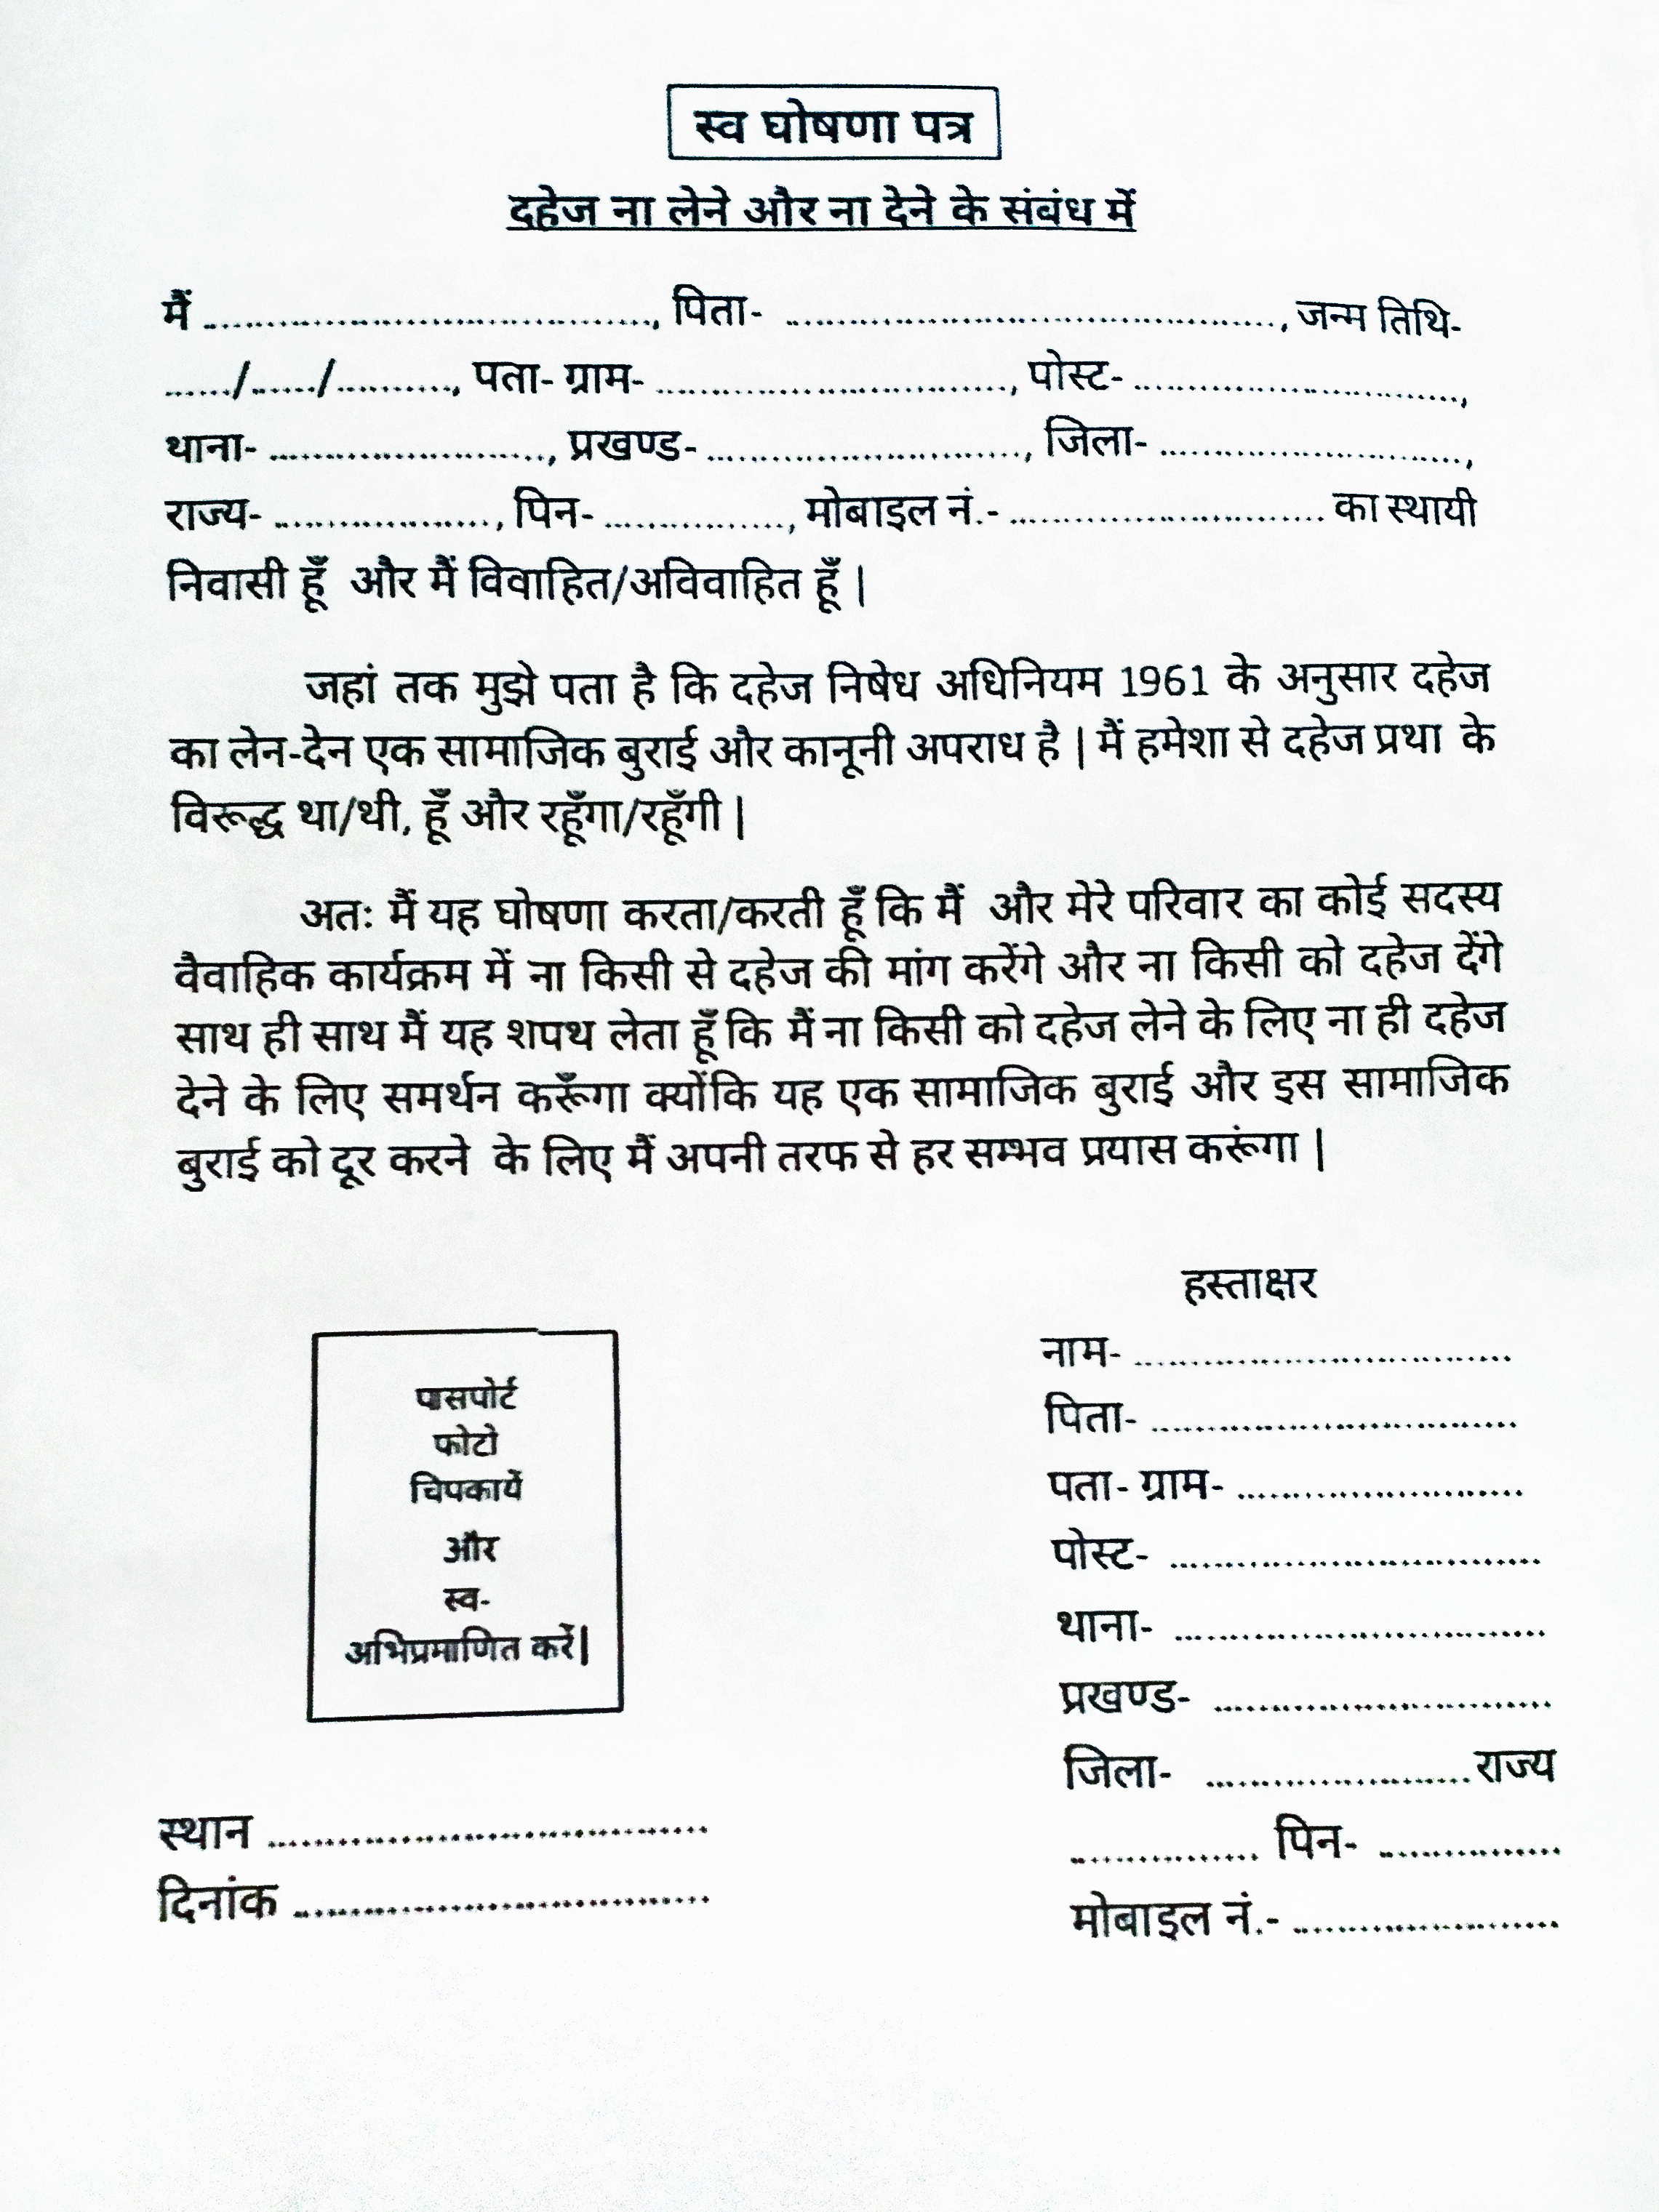 स्व घोषणा पत्र
दहेज ना लेने और ना देने के संबंध में
मैं ......................................, पिता- .........................................., जन्म तिथि-
....../....../.........., पता- ग्राम- .............................., पोस्ट- ............................,
थाना- ........................, प्रखण्ड- ..........................., जिला- ..........................,
राज्य- ..................., पिन- ................, मोबाइल नं.- ........................... का स्थायी
निवासी हूँ और मैं विवाहित/अविवाहित हूँ |
जहां तक मुझे पता है कि दहेज निषेध अधिनियम 1961 के अनुसार दहेज
का लेन-देन एक सामाजिक बुराई और कानूनी अपराध है | मैं हमेशा से दहेज प्रथा के
विरूद्ध था/थी, हूँ और रहूँगा/रहूँगी |
अतः मैं यह घोषणा करता/करती हूँ कि मैं और मेरे परिवार का कोई सदस्य
वैवाहिक कार्यक्रम में ना किसी से दहेज की मांग करेंगे और ना किसी को दहेज देंगे
साथ ही साथ मैं यह शपथ लेता हूँ कि मैं ना किसी को दहेज लेने के लिए ना ही दहेज
देने के लिए समर्थन करूँगा क्योंकि यह एक सामाजिक बुराई और इस सामाजिक
बुराई को दूर करने के लिए मैं अपनी तरफ से हर सम्भव प्रयास करूंगा |
हस्ताक्षर
नाम- ................................
पिता- ................................
पता- ग्राम- .........................
पोस्ट- ................................
थाना- ................................
प्रखण्ड- .............................
जिला- .......................राज्य
................ पिन- ................
मोबाइल नं.- .......................
पासपोर्ट
फोटो
चिपकायें
और
स्व-
अभिप्रमाणित करें|
स्थान ......................................
दिनांक ....................................